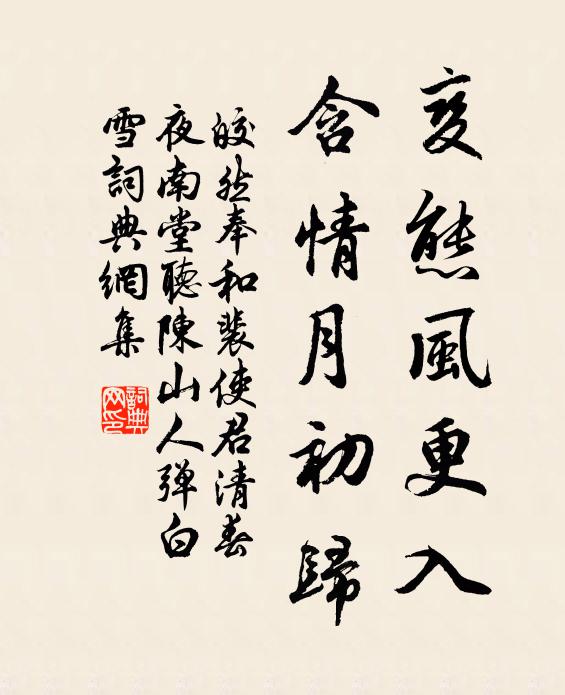 变態風更入
含情月初歸
皎然奉和裴使君清春
夜南堂聽陳山人彈白
雪詞典網集
詞典
网印